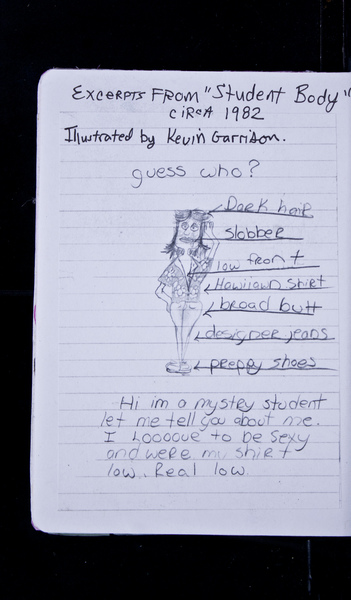 Excerpts From "Student Body"
circa 1982
Illustrated by Kevin Garrison.
guess who?
Dark hair
slobber
low front
Hawiiawn shirt
broad butt
designer jeans
preppy shoes
Hi im a mystry student
let me tell you about me.
I Looooue to be sexy
and were my shirt
low. Real low.